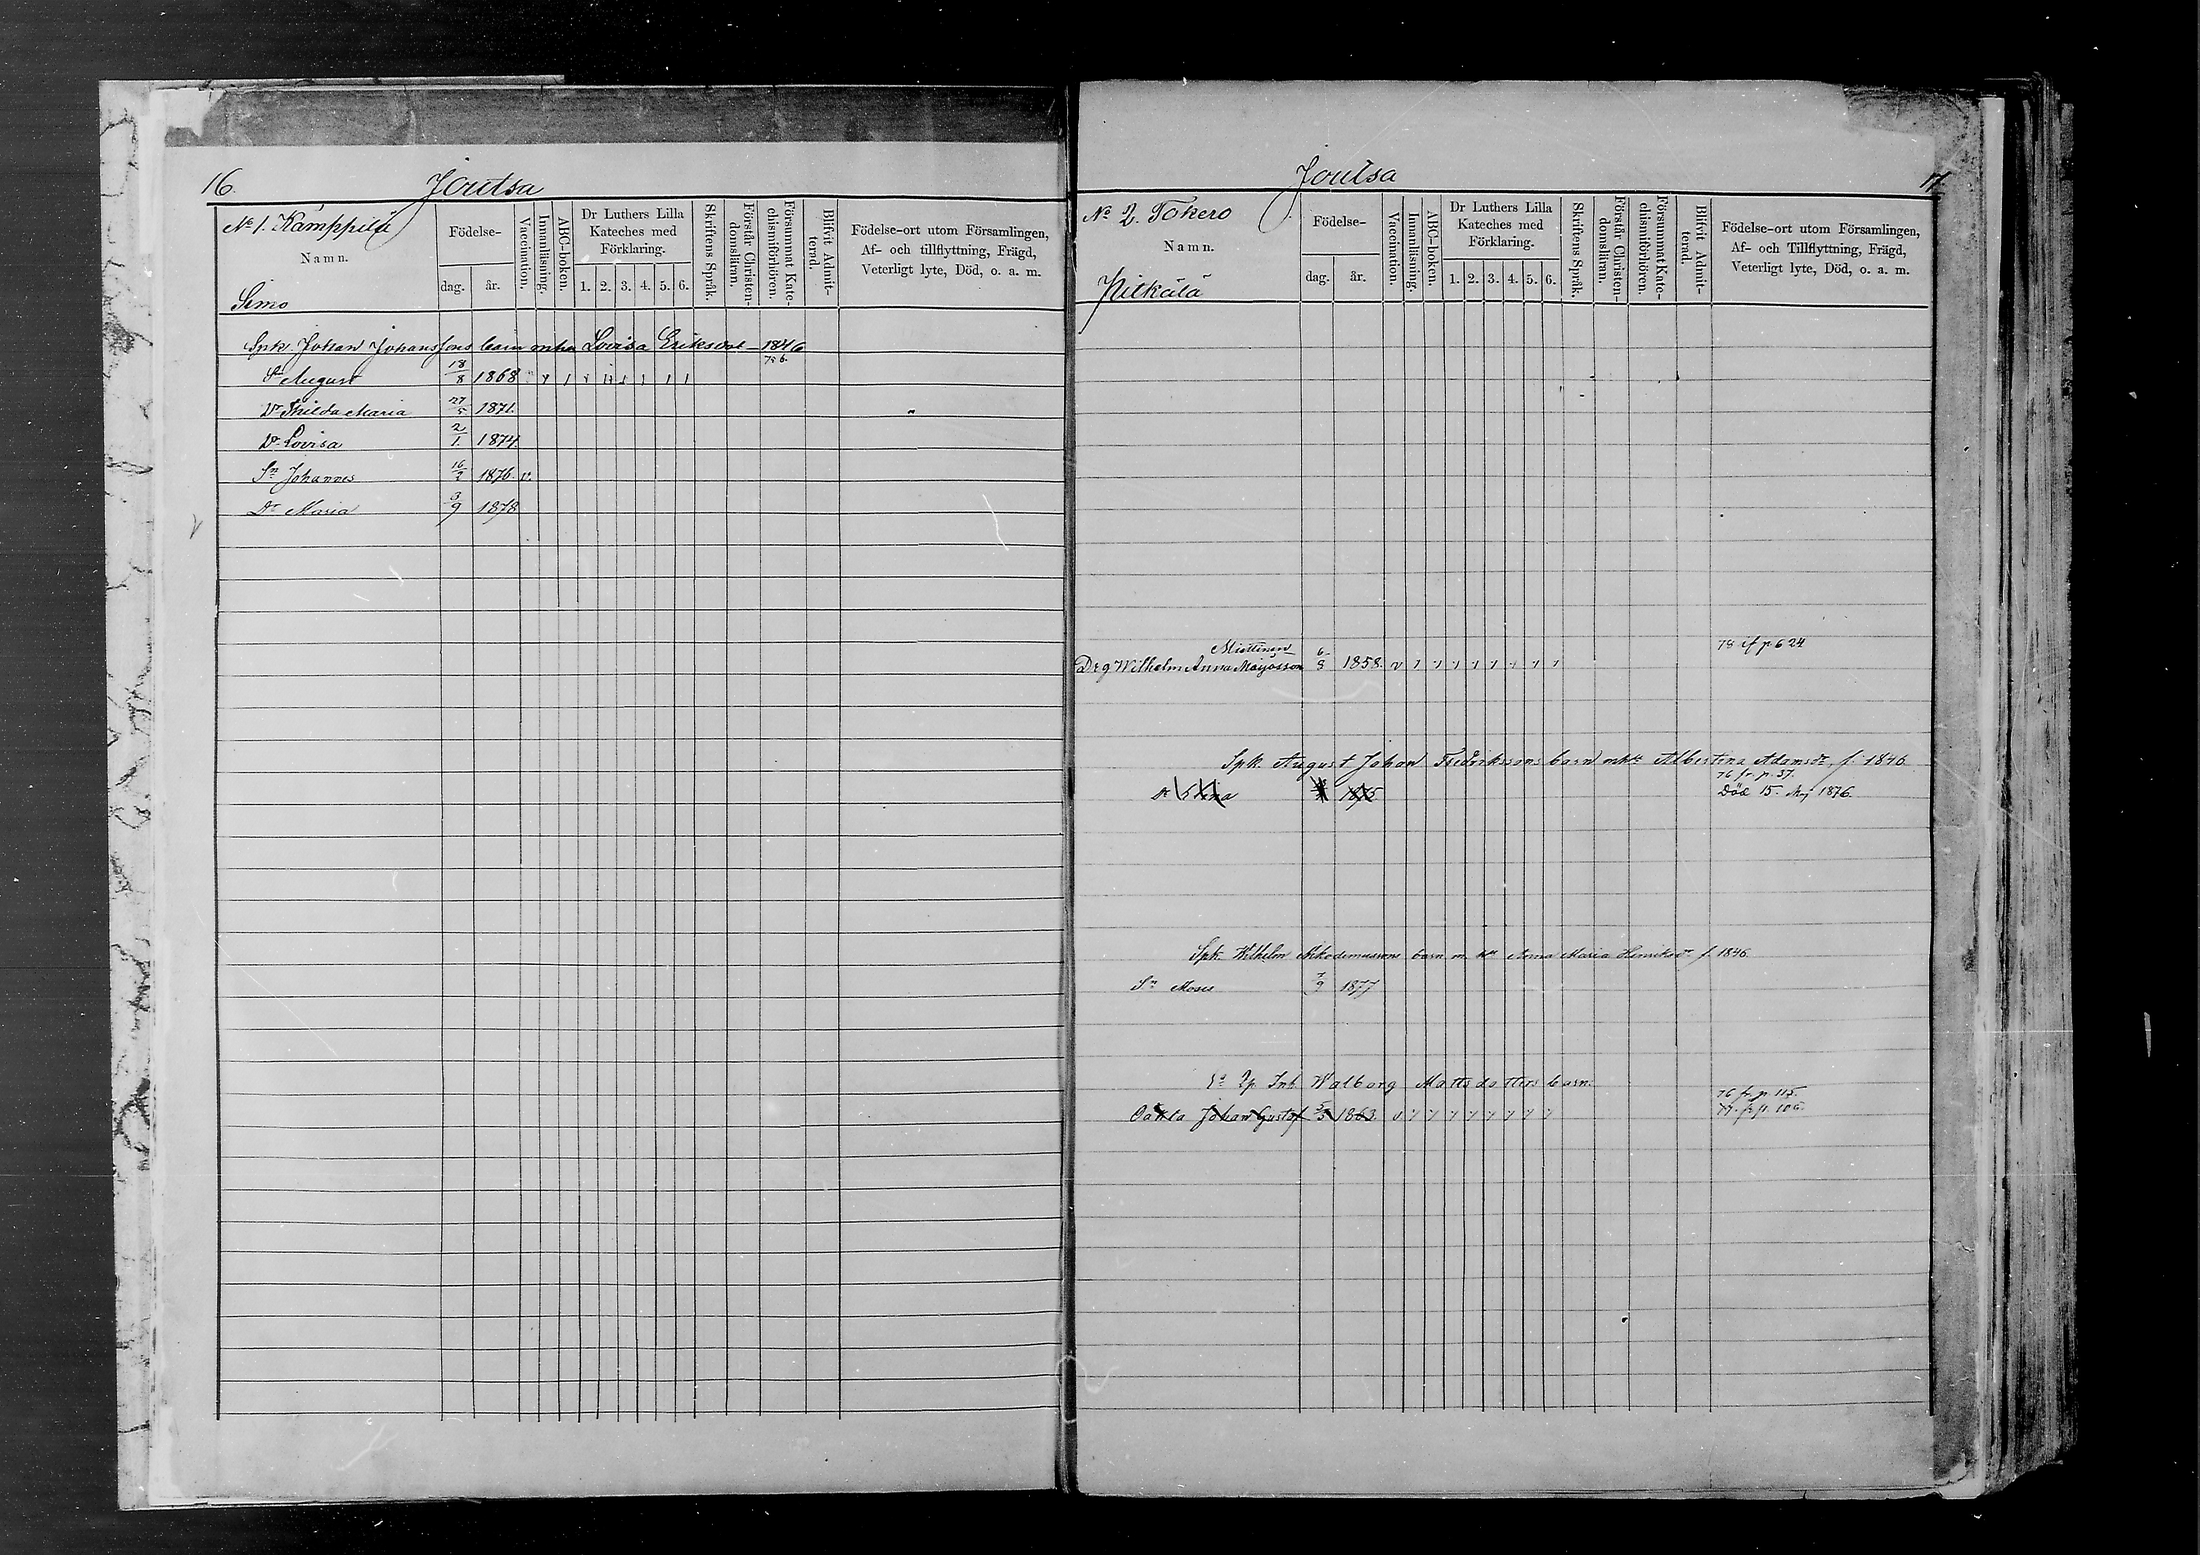 16.
Joutsa
No 1. Kämppilä
Namn.
Simo
Födelse-
dag.
år.
Vaccination.
Innanläsning.
ABC-boken.
Dr Luthers Lilla
Kateches med
Förklaring.
1. 2. 3. 4. 5. 6.
Skriftens Språk.
Förstår Christen-
domsläran.
Försummat Kate-
chismiförhören.
Blifvit Admit-
terad.
Födelse-ort utom Församlingen,
Af- och tillflyttning, Frägd,
Veterligt lyte, Död, o. a. m.
Spk. Johan Johanssons barn m hu Lovisa Eriksdr 1846
Sn August 18/8 1868
Dr Thilda Maria 27/5 1871.
Dr Lovisa 2/1 1874
Sn Johannes 16/2 1876. v.
Dr Maria 3/9 1878
Joutsa
17
No 2. Tokero
Namn.
Pitkälä
Födelse-
dag.
år.
Vaccination.
Innanläsning.
ABC-boken.
Dr Luthers Lilla
Kateches med
Förklaring.
1. 2. 3. 4. 5. 6.
Skriftens Språk.
Förstår Christen-
domsläran.
Försummat Kate-
chismiförhören.
Blifvit Admit-
terad.
Födelse-ort utom Församlingen,
Af- och Tillflyttning, Frägd,
Veterligt lyte, Död, o. a. m.
Miettinen
78 if p 624
Drg Wilhelm Anna Maijasson 6/8 1858. v
Spk. August Johan Fredrikssons barn m hu Albertina Adamsdr f. 1846
76 fr. p. 37.
Dr Stina 1875 Död 15. Maj 1876.
Spk. Wilhelm Nikodemussons barn m. hu Anna Maria Henriksdr f. 1846.
Sn Moses 7/9 1877
Inh Walborg Mattsdotters barn.
76 fr. p. 115.
Oäkta Johan Gustaf 5/3 1863. v 77. p. 106.